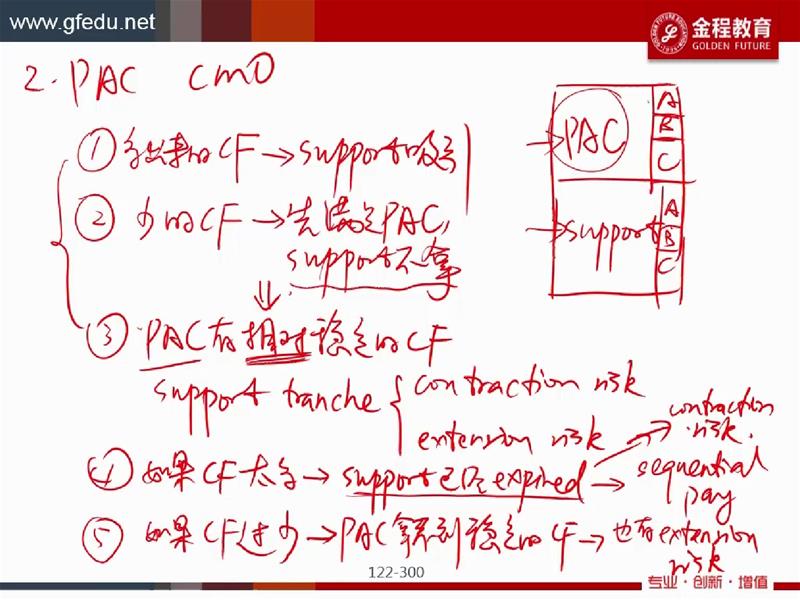 www.gfedu.net
金程教育
GOLDEN FUTURE
2. PAC CMO
① 多出来的CF → support吸收
② 少的CF → 先满足PAC,
support不拿
③ PAC有相对稳定的CF
support tranche { contraction risk
extension risk
④ 如果CF太多 → support已经expired → contraction risk.
→ sequential pay
⑤ 如果CF过少 → PAC拿不到稳定的CF → 也有extension risk
PAC
A
B
C
support
A
B
C
122-300
专业·创新·增值